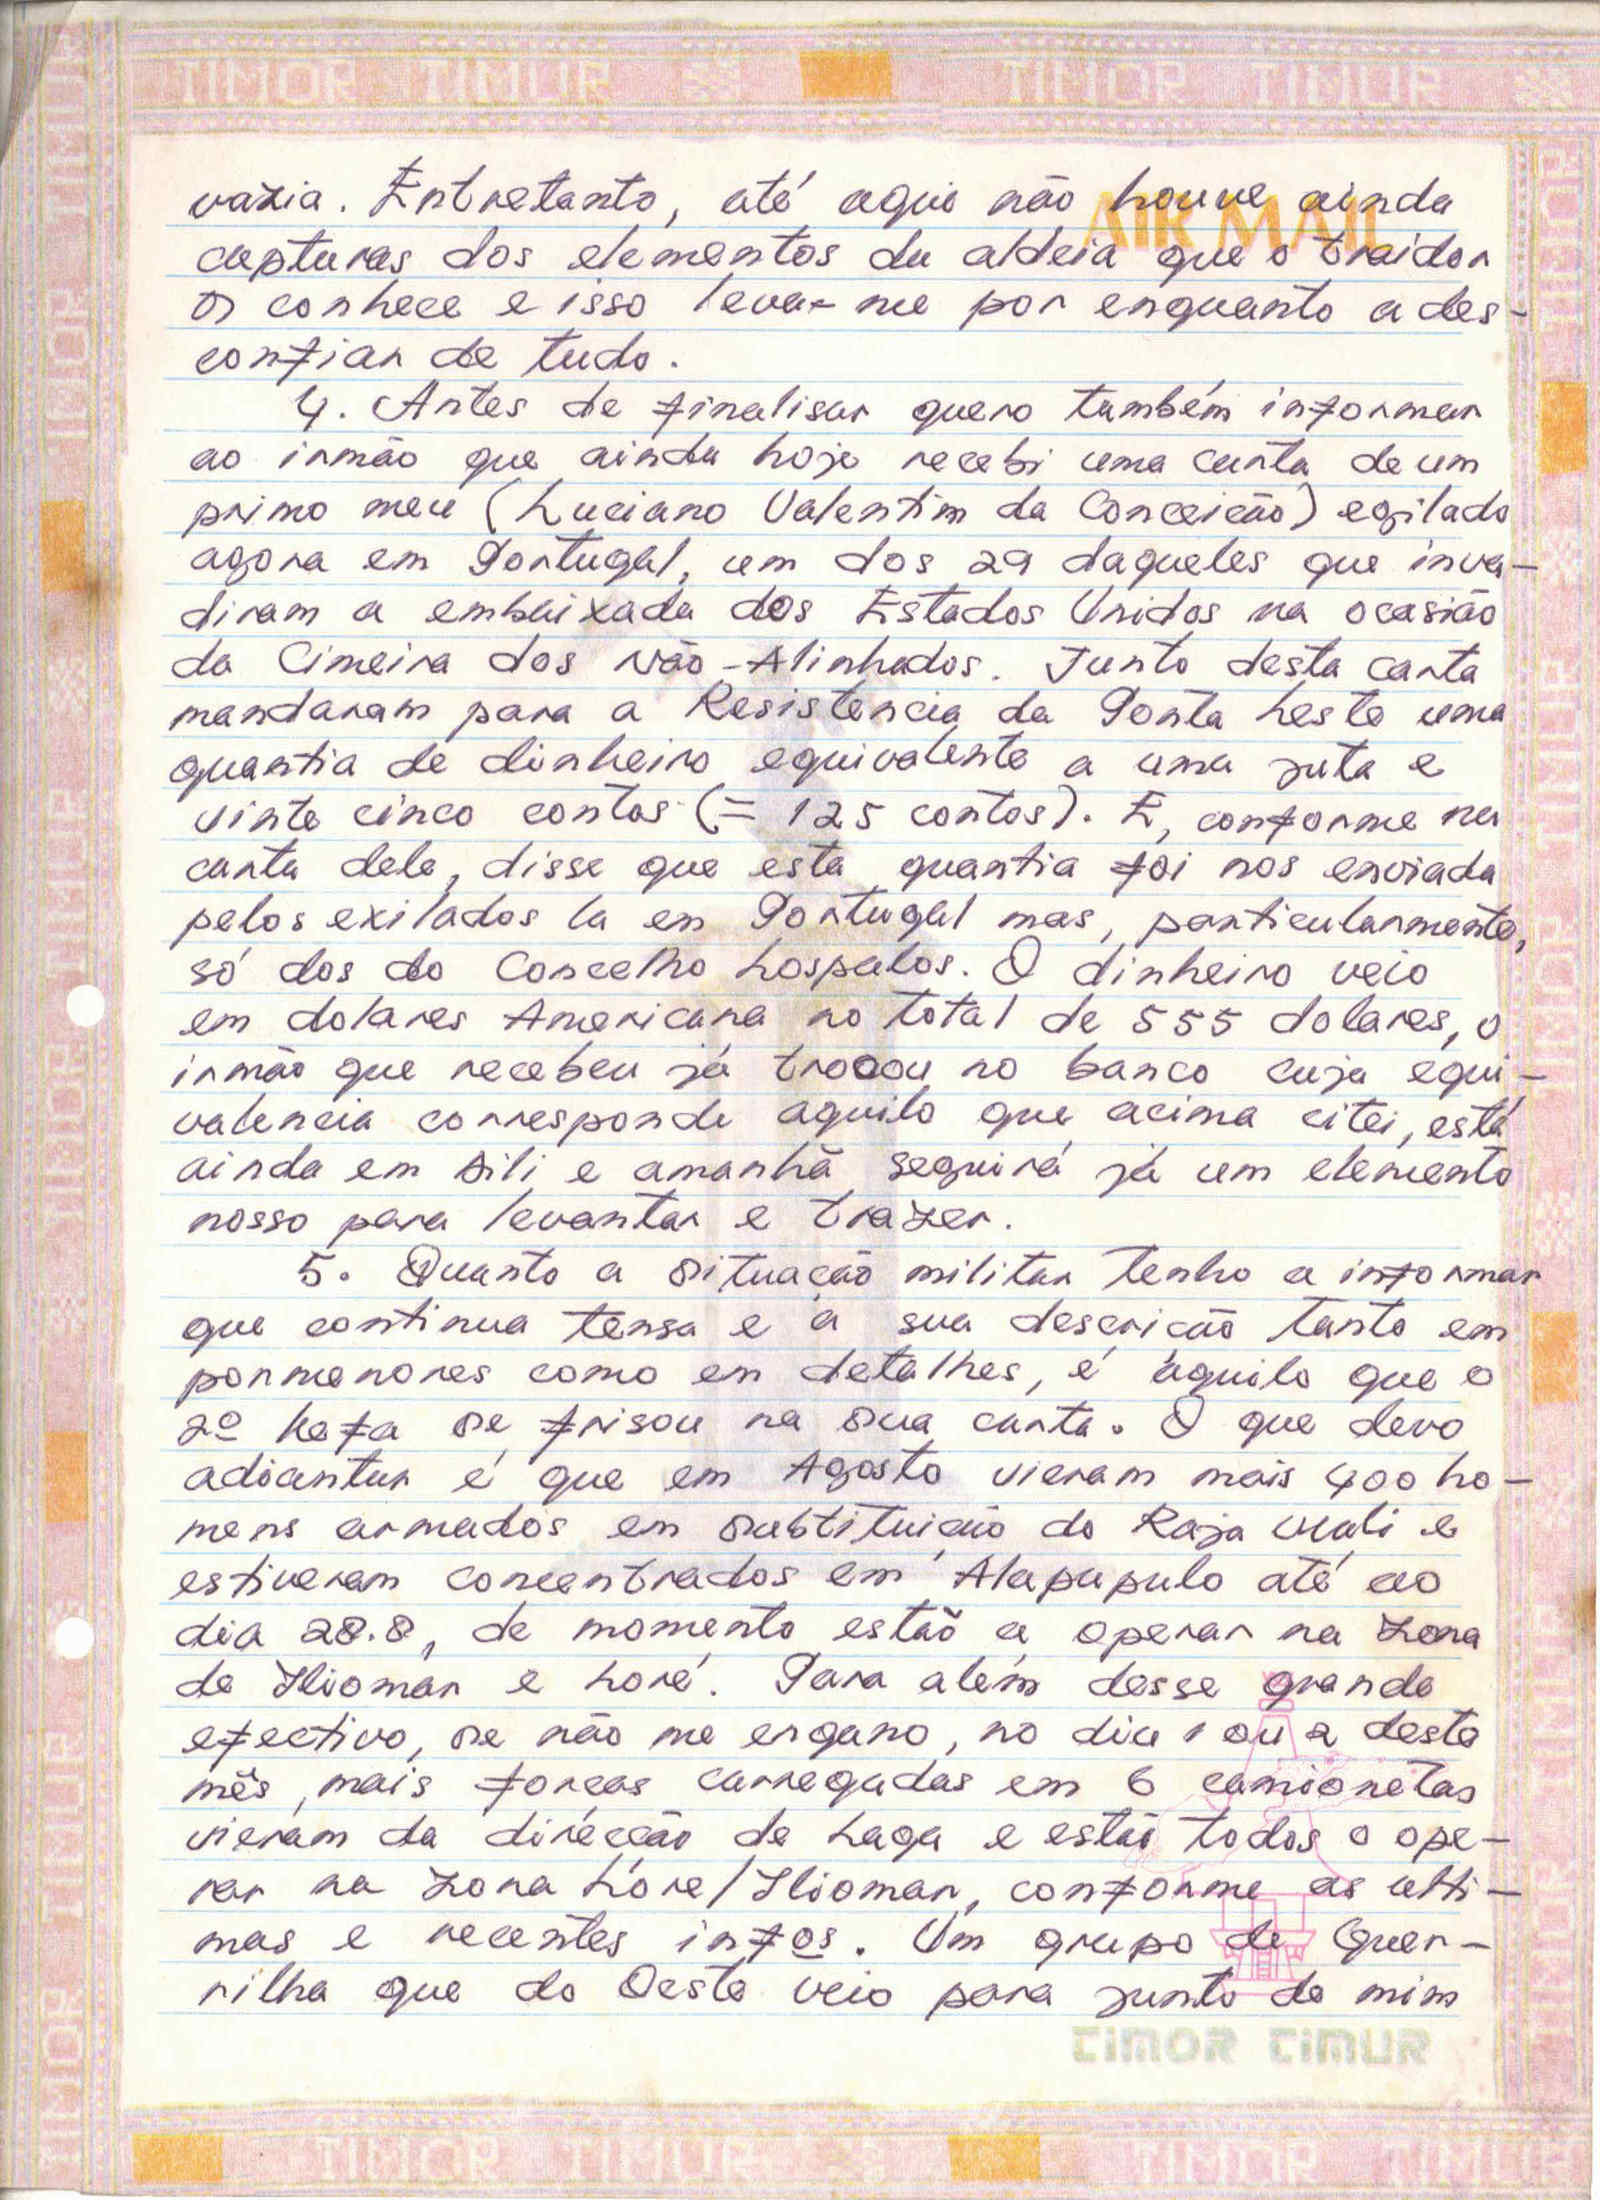 TIMOR TIMUR TIMOR TIMUR
AIR MAIL
vazia. Entretanto, até aqui não houve ainda
capturas dos elementos da aldeia que o traidor
os conhece e isso leva-me por enquanto a des-
confiar de tudo.
4. Antes de finalisar quero também informar
ao irmão que ainda hoje recebi uma carta de um
primo meu (Luciano Valentim da Conceição) egilado
agora em Portugal, um dos 29 daqueles que inva-
diram a embaixada dos Estados Unidos na ocasião
da Cimeira dos Não-Alinhados. Junto desta carta
mandaram para a Resistencia da Ponta Leste uma
quantia de dinheiro equivalente a uma juta e
vinte cinco contos (= 125 contos). E, conforme na
carta dele, disse que esta quantia foi nos enviada
pelos exilados la em Portugal mas, particularmente,
só dos do Concelho Lospalos. O dinheiro veio
em dolares Americana no total de 555 dolares, o
irmão que recebeu já trocou no banco cuja equi-
valencia corresponde aquilo que acima citei, está
ainda em Dili e amanhã seguirá já um elemento
nosso para levantar e trazer.
5. Quanto a situação militar tenho a informar
que continua tensa e a sua descrição tanto em
pormenores como em detalhes, é àquilo que o
2º Kafa se frisou na sua carta. O que devo
adiantar é que em Agosto vieram mais 400 ho-
mens armados em substituição do Raja Wali e
estiveram concentrados em Alapupulo até ao
dia 28.8, de momento estão a operar na Zona
de Iliomar e Loré. Para além desse grande
efectivo, se não me engano, no dia 1 ou 2 deste
mês, mais forças carregadas em 6 camionetas
vieram da direcção de Laga e estão todos a ope-
rar na Zona Lóre/Iliomar, conforme as ulti-
mas e recentes infos. Um grupo de Guer-
rilha que do Oeste veio para junto de mim
TIMOR TIMUR
TIMOR TIMUR TIMOR TIMUR